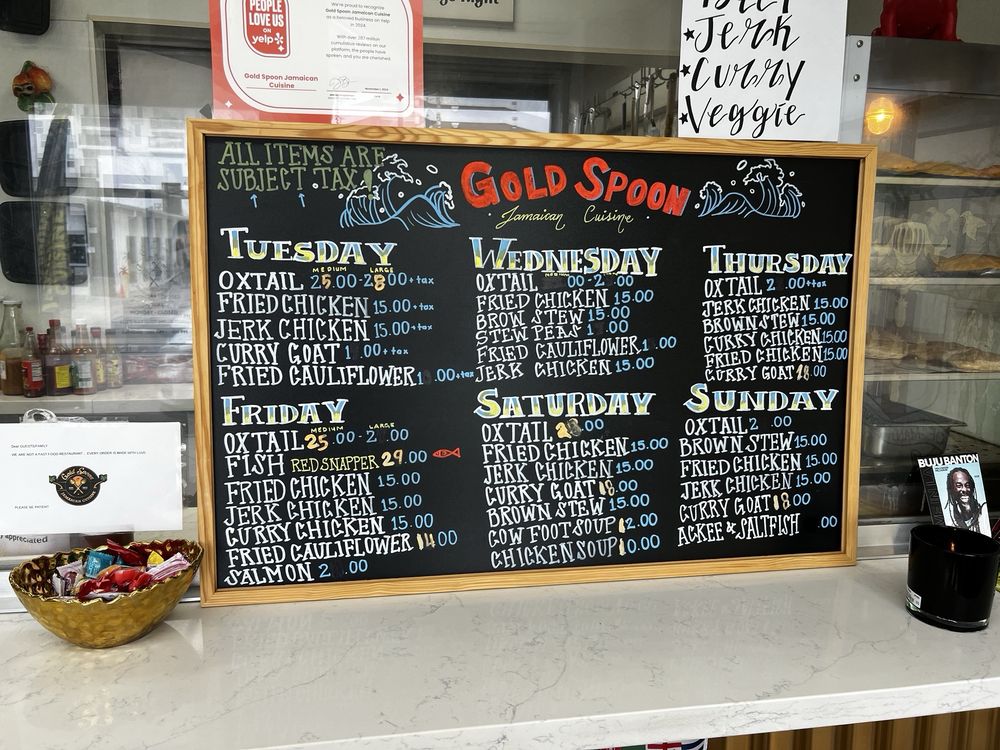 PEOPLE
LOVE US
ON
yelp
We're proud to recognize
Gold Spoon Jamaican Cuisine
as a beloved business on Yelp
in 2024.
With over 287 million
cumulative reviews on our
platform, the people have
spoken, and you are cherished.
Gold Spoon Jamaican
Cuisine
Jerk
Curry
Veggie
ALL ITEMS ARE
SUBJECT . TAX!
GOLD SPOON
Jamaican Cuisine
TUESDAY
MEDIUM LARGE
OXTAIL 25.00-28.00+tax
FRIED CHICKEN 15.00+tax
JERK CHICKEN 15.00+tax
CURRY GOAT 1 .00+tax
FRIED CAULIFLOWER 1 .00+tax
WEDNESDAY
OXTAIL .00-2 .00
FRIED CHICKEN 15.00
BROW STEW 15.00
STEW PEAS 1 .00
FRIED CAULIFLOWER 1 .00
JERK CHICKEN 15.00
THURSDAY
OXTAIL 2 .00+tax
JERK CHICKEN 15.00
BROWN STEW 15.00
CURRY CHICKEN 15.00
FRIED CHICKEN 15.00
CURRY GOAT 18.00
FRIDAY
MEDIUM LARGE
OXTAIL 25.00-2 .00
FISH RED SNAPPER 29.00
FRIED CHICKEN 15.00
JERK CHICKEN 15.00
CURRY CHICKEN 15.00
FRIED CAULIFLOWER 14.00
SALMON 2 .00
SATURDAY
OXTAIL 28.00
FRIED CHICKEN 15.00
JERK CHICKEN 15.00
CURRY GOAT 18.00
BROWN STEW 15.00
COW FOOT SOUP 12.00
CHICKEN SOUP 10.00
SUNDAY
OXTAIL 2 .00
BROWN STEW 15.00
FRIED CHICKEN 15.00
JERK CHICKEN 15.00
CURRY GOAT 18.00
ACKEE & SALTFISH .00
Dear GUESTS/FAMILY
WE ARE NOT A FAST FOOD RESTAURANT , EVERY ORDER IS MADE WITH LOVE
Gold Spoon
JAMAICAN CUISINE
PLEASE BE PATIENT
appreciated
BUJU BANTON